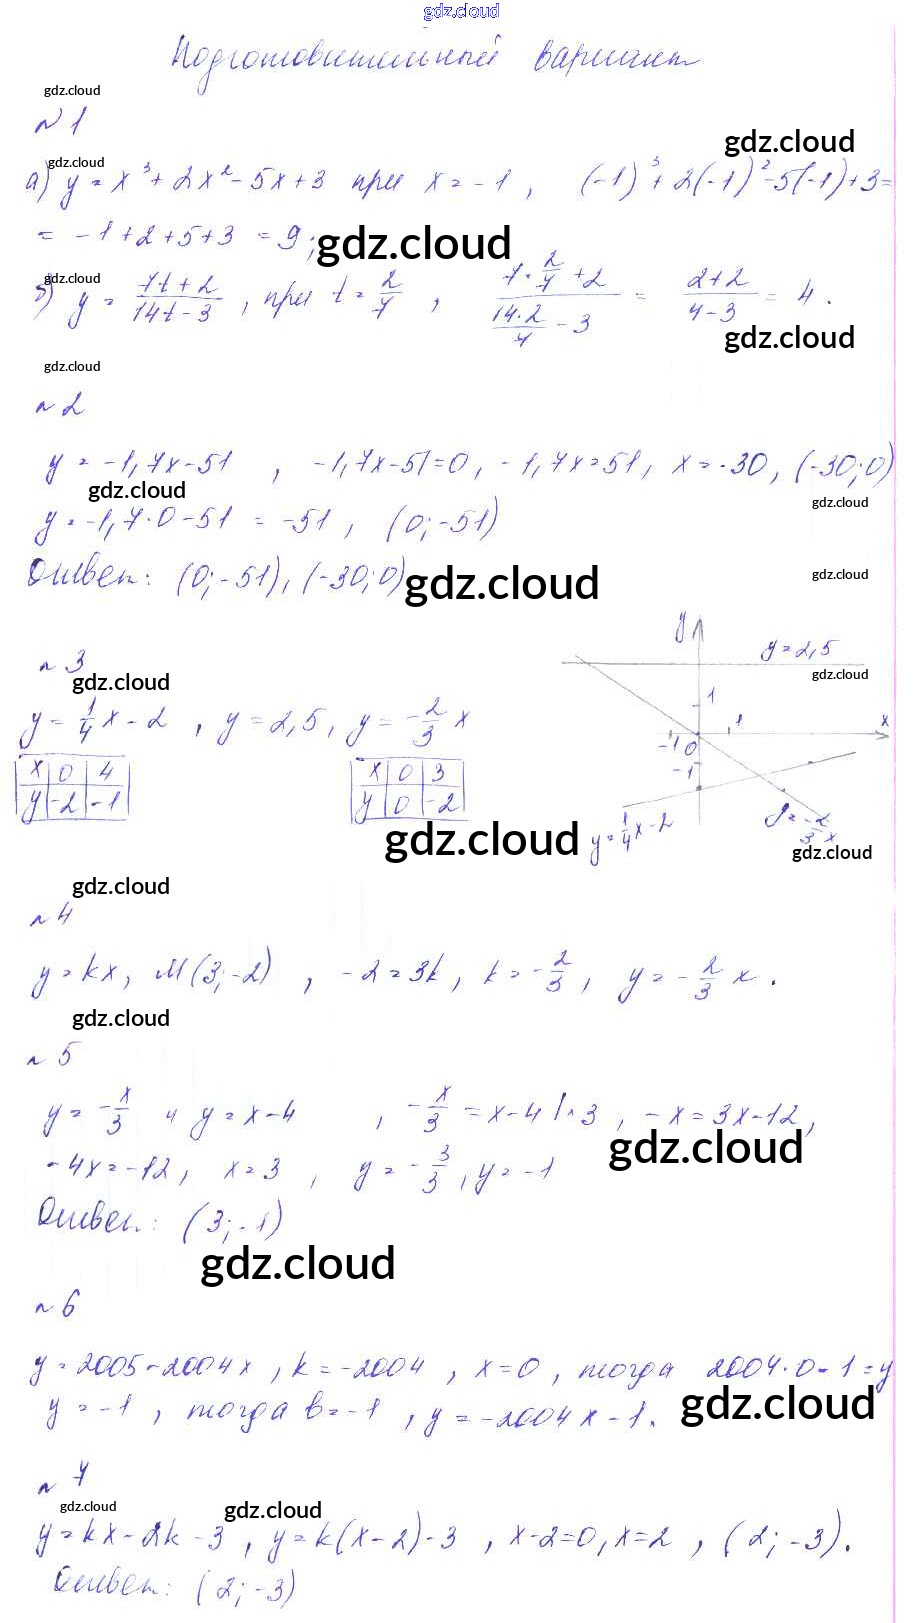 gdz.cloud
Подготовительный вариант
gdz.cloud
№ 1
gdz.cloud
gdz.cloud
а) y = x³ + 2x² - 5x + 3 при x = -1, (-1)³ + 2(-1)² - 5(-1) + 3 =
= -1 + 2 + 5 + 3 = 9;
gdz.cloud
gdz.cloud
б) y = (7t + 2)/(14t - 3), при t = 2/7, (7·2/7 + 2)/(14·2/7 - 3) = (2+2)/(4-3) = 4.
gdz.cloud
gdz.cloud
№ 2
y = -1,7x - 51, -1,7x - 51 = 0, -1,7x = 51, x = -30, (-30; 0)
gdz.cloud
gdz.cloud
y = -1,7·0 - 51 = -51, (0; -51)
Ответ: (0; -51), (-30; 0)
gdz.cloud
gdz.cloud
№ 3
gdz.cloud
y = 1/4 x - 2, y = 2,5, y = -2/3 x
x 0 4
y -2 -1
x 0 3
y 0 -2
y
y = 2,5
gdz.cloud
1
1
x
-1 0
-1
y = 1/4 x - 2
y = -2/3 x
gdz.cloud
gdz.cloud
gdz.cloud
№ 4
y = kx, M(3; -2), -2 = 3k, k = -2/3, y = -2/3 x.
gdz.cloud
№ 5
y = -x/3 и y = x - 4, -x/3 = x - 4 |·3, -x = 3x - 12,
gdz.cloud
-4x = -12, x = 3, y = -3/3, y = -1
Ответ: (3; -1)
gdz.cloud
№ 6
y = 2005 - 2004x, k = -2004, x = 0, тогда 2004·0 - 1 = y
gdz.cloud
y = -1, тогда b = -1, y = -2004x - 1.
№ 7
gdz.cloud
gdz.cloud
y = kx - 2k - 3, y = k(x - 2) - 3, x - 2 = 0, x = 2, (2; -3).
Ответ: (2; -3)